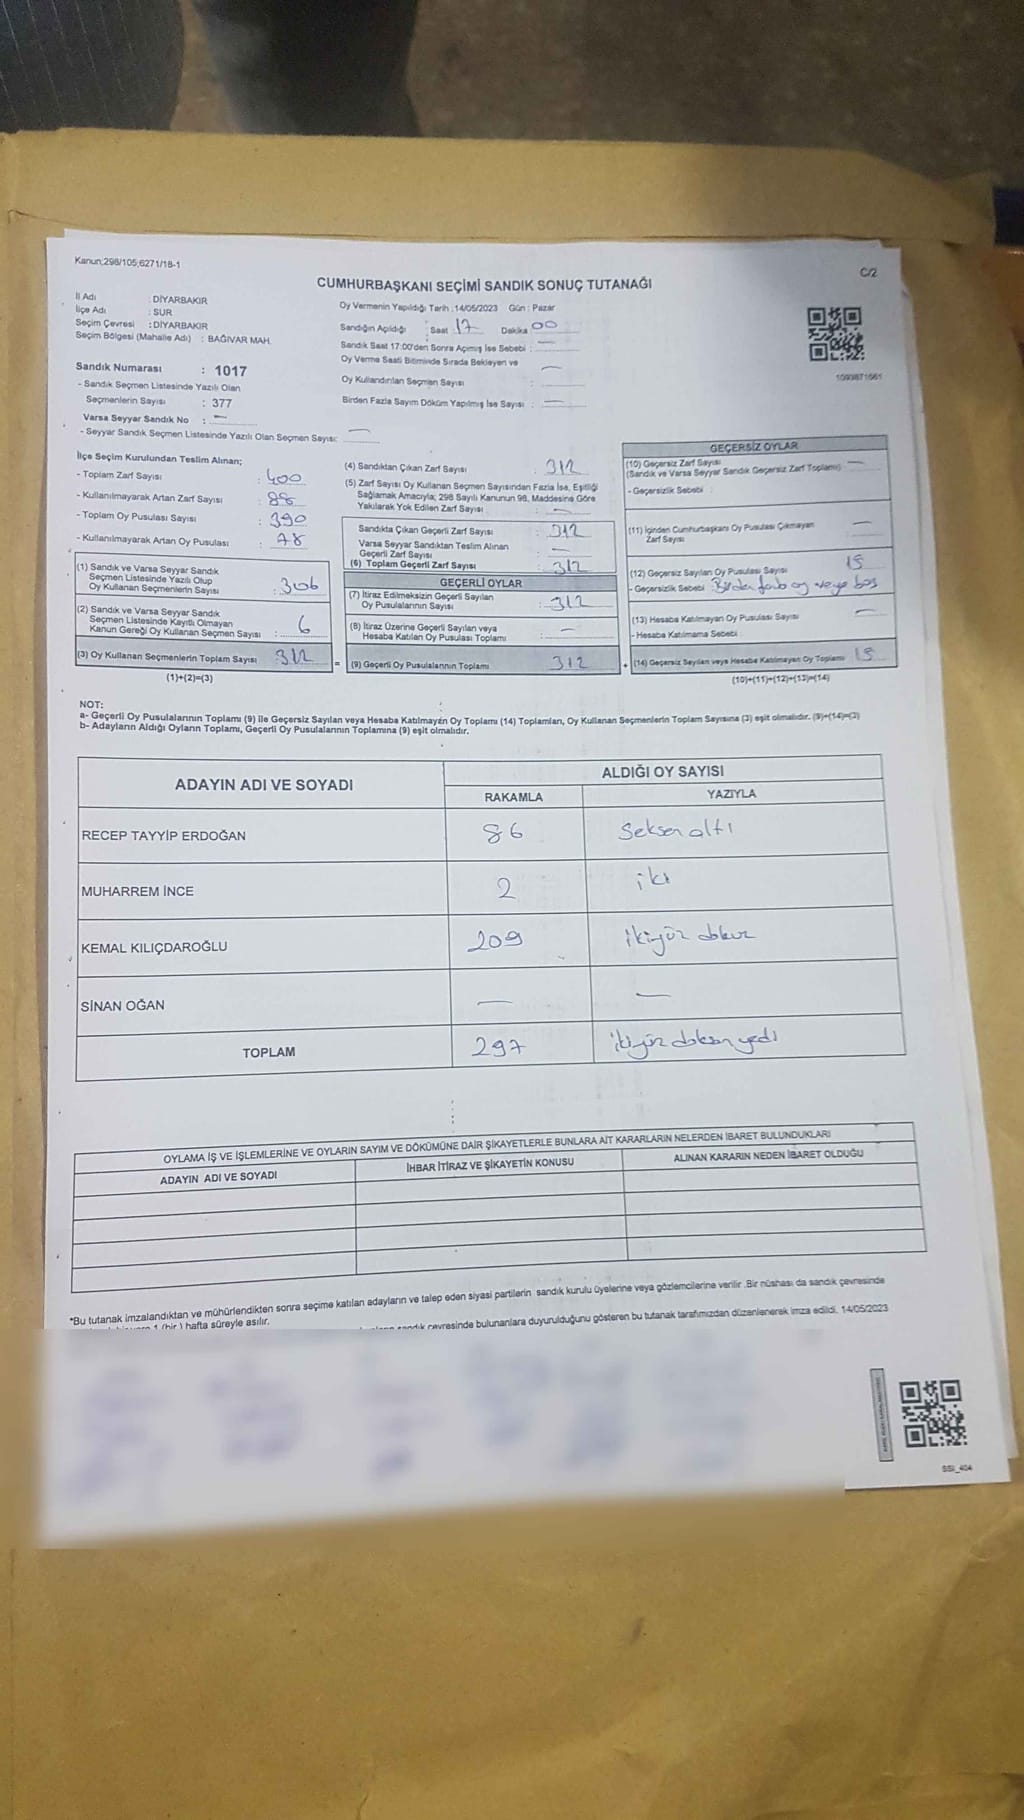 Kanun;298/105;6271/18-1
C/2
CUMHURBAŞKANI SEÇİMİ SANDIK SONUÇ TUTANAĞI
İl Adı : DİYARBAKIR
İlçe Adı : SUR
Seçim Çevresi : DİYARBAKIR
Seçim Bölgesi (Mahalle Adı) : BAĞIVAR MAH.
Sandık Numarası : 1017
- Sandık Seçmen Listesinde Yazılı Olan
Seçmenlerin Sayısı : 377
Varsa Seyyar Sandık No : —
- Seyyar Sandık Seçmen Listesinde Yazılı Olan Seçmen Sayısı: —
Oy Vermenin Yapıldığı Tarih :14/05/2023 Gün : Pazar
Sandığın Açıldığı : Saat 17 Dakika 00
Sandık Saat 17:00'den Sonra Açılmış İse Sebebi : —
Oy Verme Saati Bitiminde Sırada Bekleyen ve
Oy Kullandırılan Seçmen Sayısı : —
Birden Fazla Sayım Döküm Yapılmış İse Sayısı : —
1093871661
İlçe Seçim Kurulundan Teslim Alınan;
- Toplam Zarf Sayısı : 400
- Kullanılmayarak Artan Zarf Sayısı : 88
- Toplam Oy Pusulası Sayısı : 390
- Kullanılmayarak Artan Oy Pusulası : 78
(1) Sandık ve Varsa Seyyar Sandık
Seçmen Listesinde Yazılı Olup
Oy Kullanan Seçmenlerin Sayısı : 306
(2) Sandık ve Varsa Seyyar Sandık
Seçmen Listesinde Kayıtlı Olmayan
Kanun Gereği Oy Kullanan Seçmen Sayısı : 6
(3) Oy Kullanan Seçmenlerin Toplam Sayısı : 312
(1)+(2)=(3)
=
(4) Sandıktan Çıkan Zarf Sayısı : 312
(5) Zarf Sayısı Oy Kullanan Seçmen Sayısından Fazla İse, Eşitliği
Sağlamak Amacıyla; 298 Sayılı Kanunun 98. Maddesine Göre
Yakılarak Yok Edilen Zarf Sayısı : —
Sandıkta Çıkan Geçerli Zarf Sayısı : 312
Varsa Seyyar Sandıktan Teslim Alınan
Geçerli Zarf Sayısı : —
(6) Toplam Geçerli Zarf Sayısı : 312
GEÇERLİ OYLAR
(7) İtiraz Edilmeksizin Geçerli Sayılan
Oy Pusulalarının Sayısı : 312
(8) İtiraz Üzerine Geçerli Sayılan veya
Hesaba Katılan Oy Pusulası Toplamı : —
(9) Geçerli Oy Pusulalarının Toplamı 312
+
GEÇERSİZ OYLAR
(10) Geçersiz Zarf Sayısı —
(Sandık ve Varsa Seyyar Sandık Geçersiz Zarf Toplamı)
- Geçersizlik Sebebi :
(11) İçinden Cumhurbaşkanı Oy Pusulası Çıkmayan
Zarf Sayısı —
(12) Geçersiz Sayılan Oy Pusulası Sayısı 15
- Geçersizlik Sebebi : Birden fazla oy veya boş
(13) Hesaba Katılmayan Oy Pusulası Sayısı —
- Hesaba Katılmama Sebebi
(14) Geçersiz Sayılan veya Hesaba Katılmayan Oy Toplamı 15
(10)+(11)+(12)+(13)=(14)
NOT:
a- Geçerli Oy Pusulalarının Toplamı (9) ile Geçersiz Sayılan veya Hesaba Katılmayan Oy Toplamı (14) Toplamları, Oy Kullanan Seçmenlerin Toplam Sayısına (3) eşit olmalıdır. (9)+(14)=(3)
b- Adayların Aldığı Oyların Toplamı, Geçerli Oy Pusulalarının Toplamına (9) eşit olmalıdır.
ADAYIN ADI VE SOYADI
ALDIĞI OY SAYISI
RAKAMLA YAZIYLA
RECEP TAYYİP ERDOĞAN 86 Seksen altı
MUHARREM İNCE 2 iki
KEMAL KILIÇDAROĞLU 209 ikiyüz dokuz
SİNAN OĞAN — —
TOPLAM 297 ikiyüz doksan yedi
OYLAMA İŞ VE İŞLEMLERİNE VE OYLARIN SAYIM VE DÖKÜMÜNE DAİR ŞİKAYETLERLE BUNLARA AİT KARARLARIN NELERDEN İBARET BULUNDUKLARI
ADAYIN ADI VE SOYADI İHBAR İTİRAZ VE ŞİKAYETİN KONUSU ALINAN KARARIN NEDEN İBARET OLDUĞU
*Bu tutanak imzalandıktan ve mühürlendikten sonra seçime katılan adayların ve talep eden siyasi partilerin sandık kurulu üyelerine veya gözlemcilerine verilir .Bir nüshası da sandık çevresinde
1 (bir ) hafta süreyle asılır.
sandık çevresinde bulunanlara duyurulduğunu gösteren bu tutanak tarafımızdan düzenlenerek imza edildi. 14/05/2023
SSI_404